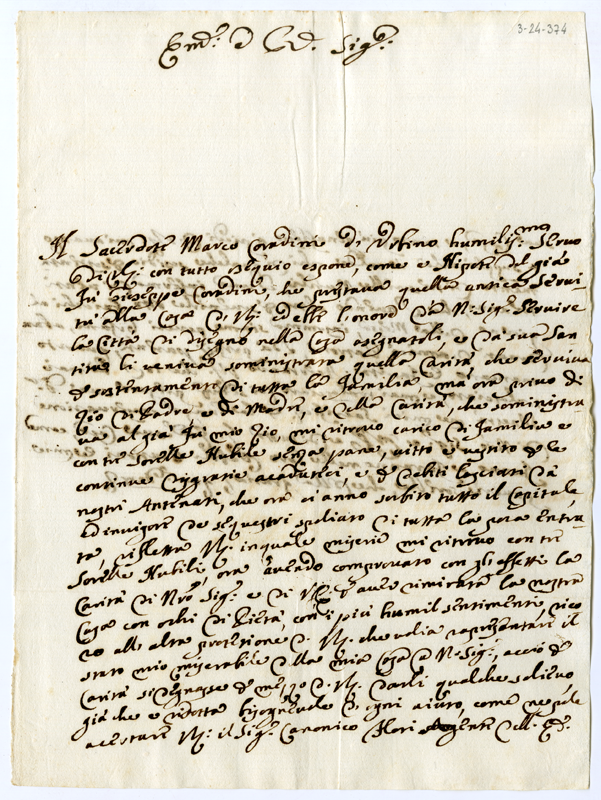 3-24-374
Em.º e Sig.e
Il Sacerdote Marco Coradini di Urbino humiliss.mo Servo
di con tutto osequio espone, come e Nipote del già
Giuseppe Coradini, che prestava quella antica servi
tù alla Casa ed ebbe l'onore da N. Sig.e servire
la Città di disegno nella Casa asegnatoli, e da sua San
tità li veniva soministrata quella Carità che serviva
sostentamento di tutta la Familia, mà ora privo di
Zio di Padre e di Madre, e della Carità, che soministra
va al già mio Zio, mi ritrovo carico di Familia e
con tre Sorelle Nubile senza pane, vitto e vestito e le
continue disgratie acaduteci, e debiti lasciati da
nostri Antenati, che ora ci anno sorbito tutto il Capitale,
ed in vigore de sequestri di tutta la poca entra
ta, rifletta in quale miserie mi ritrovo con tre
Sorelle Nubili, ora avendo comprovato con gli effetti la
Carità di Nro Sig.e e di aver rimirata la nostra
Casa con ochi di Pietà, con i più humil sentimenti rico
ro alla alta protezione che volia rapresentare il
stato mio miserabile e della mia Casa a N. Sig.e, acciò
Carità si degnasse darli qualche solievo,
già che e ridotta bisognevole ogni aiuto, come ne può
acertare il Sig.e Canonico Flori